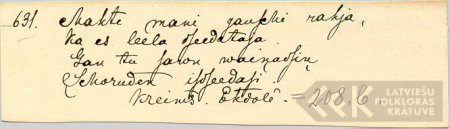 631. Makte mani gauschi rahja,
Ka es leela dseedataja.
Gan tu sawu wainadsiņu
Schoruden isseedasi.
Kreims. Ekdolē. = 208,6.
LATVIEŠU
FOLKLORAS
KRĀTUVE